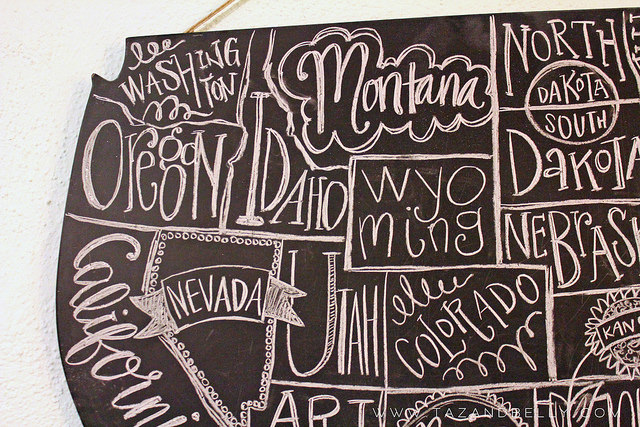 WASHING
TON
Montana
NORTH
DAKOTA
SOUTH
DAKOTA
OregoN
IDAHO
Wyo
ming
NEBRAS
California
NEVADA
UTAH
COLORADO
KAN
WWW.TAZANDBELLY.COM